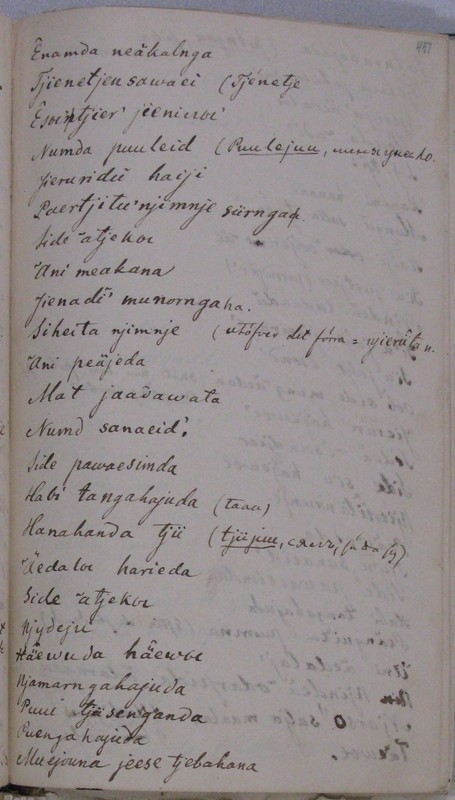 451
Enamda neäkalnga
Tjienetjensawaei (Tjénetje
jieniwoi
Numda puuleid (Puulejuu,
Jieruridü haiji
Paertjitu njimnje
Side atjekoi
Ani meakana
Jienadi munorngaha.
Siheita njimnje (utöfver det förra =
Ani peäjeda
Mat jaadawata
Numd sanaeid.
Side pawaesimda
Habi tangahajuda (taau)
Hanahanda tjü (tjüjuu,
Äedaloi harieda
Side atjekoi
Njydeju
Häewuda häewoi
Njamarngahajuda
Puui tjäsenganda
Puengahajuda
Muejouna jeese tjebahana